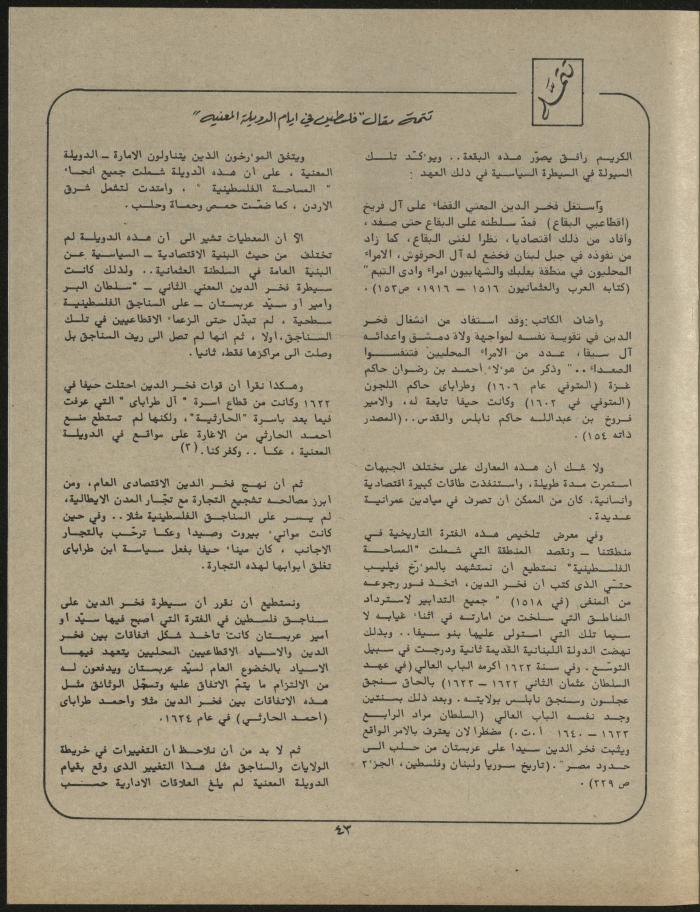 تتمة
تتمة مقال "فلسطين في ايام الدويلة المعنيه"
الكريم رافق يصوّر هذه البقعة.. ويوءكّد تلك
السيولة في السيطرة السياسية في ذلك العهد :
واستغل فخر الدين المعني القضاء على آل فريخ
(اقطاعيي البقاع) فمدّ سلطته على البقاع حتى صفد ،
وأفاد من ذلك اقتصاديا، نظرا لغنى البقاع، كما زاد
من نفوذه في جبل لبنان فخضع له آل الحرفوش، الامراء
المحليون في منطقة بعلبك والشهابيون امراء وادى التيم"
(كتابه العرب والعثمانيون ١٥١٦ – ١٩١٦، ص١٥٣) .
وأضاف الكاتب :وقد استفاد من انشغال فخر
الدين في تقوية نفسه لمواجهة ولاة دمشق واعدائه
آل سيفا، عدد من الامراء المحليين فتنفسوا
الصعداء .." وذكر من هوءلاء احمد بن رضوان حاكم
غزة (المتوفي عام ١٦٠٦) وطراباى حاكم اللجون
(المتوفي في ١٦٠٢) وكانت حيفا تابعة له، والامير
فروخ بن عبدالله حاكم نابلس والقدس..(المصدر
ذاته ١٥٤) .
ولا شك أن هذه المعارك على مختلف الجبهات
استمرت مدة طويلة، واستنفذت طاقات كبيرة اقتصادية
وانسانية، كان من الممكن أن تصرف في ميادين عمرانية
عديدة .
وفي معرض تلخيص هذه الفترة التاريخية في
منطقتنا – ونقصد المنطقة التي شملت "المساحة
الفلسطينية" نستطيع أن نستشهد بالموءرّخ فيليب
حتّي الذى كتب أن فخر الدين، اتخذ فور رجوعه
من المنفى (في ١٥١٨) " جميع التدابير لاسترداد
المناطق التي سلخت من امارته في اثناء غيابه لا
سيما تلك التي استولى عليها بنو سيفا.. وبذلك
نهضت الدولة اللبنانية القديمة ثانية ودرجت في سبيل
التوسّع . وفي سنة ١٦٢٢ اكرمه الباب العالي (في عهد
السلطان عثمان الثاني ١٦٢٢ – ١٦٢٣) بالحاق سنجق
عجلون وسنجق نابلس بولايته . وبعد ذلك بسنتين
وجد نفسه الباب العالي (السلطان مراد الرابع
١٦٢٣ – ١٦٤٠ أ.ت.) مضطرا لان يعترف بالامر الواقع
ويثبت فخر الدين سيدا على عربستان من حلب الى
حدود مصر" .(تاريخ سوريا ولبنان وفلسطين، الجزء٢
ص ٢٢٩) .
ويتفق الموءرخون الذين يتناولون الامارة – الدويلة
المعنية ، على أن هذه الدويلة شملت جميع انحاء
" المساحة الفلسطينية " ، وامتدت لتشمل شرق
الاردن ، كما ضمّت حمص وحماة وحلب .
الاّ أن المعطيات تشير الى أن هذه الدويلة لم
تختلف من حيث البنية الاقتصادية – السياسية عن
البنية العامة في السلطنة العثمانية.. ولذلك كانت
سيطرة فخر الدين المعني الثاني – "سلطان البر
وأمير أو سيّد عربستان – على السناجق الفلسطينية
سطحية ، لم تبدّل حتى الزعماء الاقطاعيين في تلك
السناجق،أولا ، ثم انها لم تصل الى ريف السناجق بل
وصلت الى مراكزها فقط، ثانيا.
وهكذا نقرأ أن قوات فخر الدين احتلت حيفا في
١٦٢٢ وكانت من قطاع اسرة " آل طراباى " التي عرفت
فيما بعد باسرة "الحارثية"، ولكنها لم تستطع منع
احمد الحارثي من الاغارة على مواقع في الدويلة
المعنية ، عكا .. وكفركنا. (٣)
ثم أن نهج فخر الدين الاقتصادى العام، ومن
أبرز مصالحه تشجيع التجارة مع تجّار المدن الايطالية،
لم يسر على السناجق الفلسطينية مثلا.. وفي حين
كانت موانيء بيروت وصيدا وعكا ترحّب بالتجار
الاجانب ، كان ميناء حيفا بفعل سياسة ابن طراباى
تغلق أبوابها لهذه التجارة .
ونستطيع أن نقرر أن سيطرة فخر الدين على
سناجق فلسطين في الفترة التي أصبح فيها سيّد أو
أمير عربستان كانت تأخذ شكل اتفاقات بين فخر
الدين والاسياد الاقطاعيين المحليين يتعهد فيها
الاسياد بالخضوع العام لسيّد عربستان ويدفعون له
من الالتزام ما يتمّ الاتفاق عليه وتسجّل الوثائق مثل
هذه الاتفاقات بين فخر الدين مثلا وأحمد طراباى
(أحمد الحارثي) في عام ١٦٢٤.
ثم لا بد من أن نلاحظ أن التغييرات في خريطة
الولايات والسناجق مثل هذا التغيير الذى وقع بقيام
الدويلة المعنية لم يلغ العلاقات الادارية حسب
٤٣